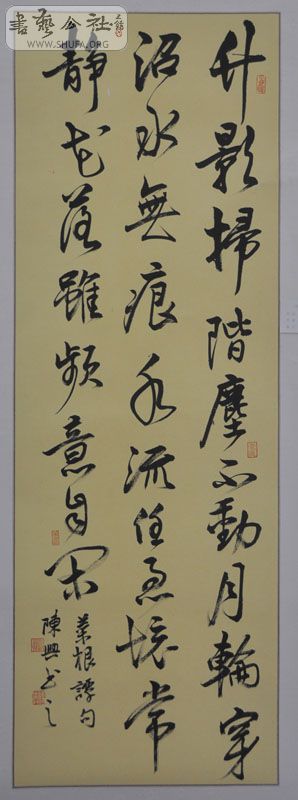 書藝公社
WWW.SHUFA.ORG
竹影掃階塵不動月輪穿
沼水無痕水流任急境常
靜花落雖頻意自閑
菜根譚句
陳興书之